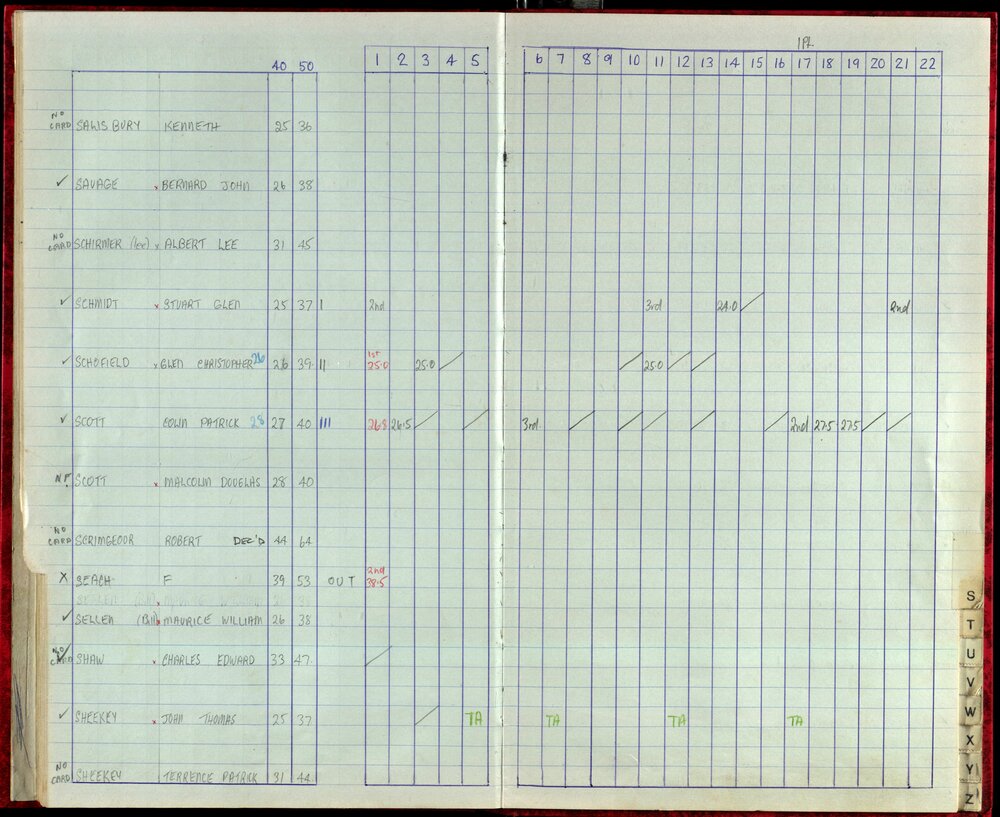 IPL
40 50 1 2 3 4 5 6 7 8 9 10 11 12 13 14 15 16 17 18 19 20 21 22
NO CARD SALISBURY KENNETH 25 36
✓ SAVAGE x BERNARD JOHN 26 38
NO CARD SCHIRMER (lee) x ALBERT LEE 31 45
✓ SCHMIDT x STUART GLEN 25 37 I 2nd 3rd 24.0 / 2nd
✓ SCHOFIELD x GLEN CHRISTOPHER 26 26 39 II 1st 25.0 25.0 / / 25.0 / /
✓ SCOTT COLIN PATRICK 28 27 40 III 26.8 26.5 / / 3rd / / / / / 2nd 27.5 27.5 / /
NF SCOTT x MALCOLM DOUGLAS 28 40
NO CARD SCRIMGEOUR ROBERT DEC'D 44 64
X SEACH F 39 53 OUT 2nd 38.5
✓ SELLEN (Bill) x MAURICE WILLIAM 26 38
NO CARD ✓ SHAW x CHARLES EDWARD 33 47 /
✓ SHEEKEY x JOHN THOMAS 25 37 / TA TA TA TA
NO CARD SHEEKEY TERRENCE PATRICK 31 44
S
T
U
V
W
X
Y
Z